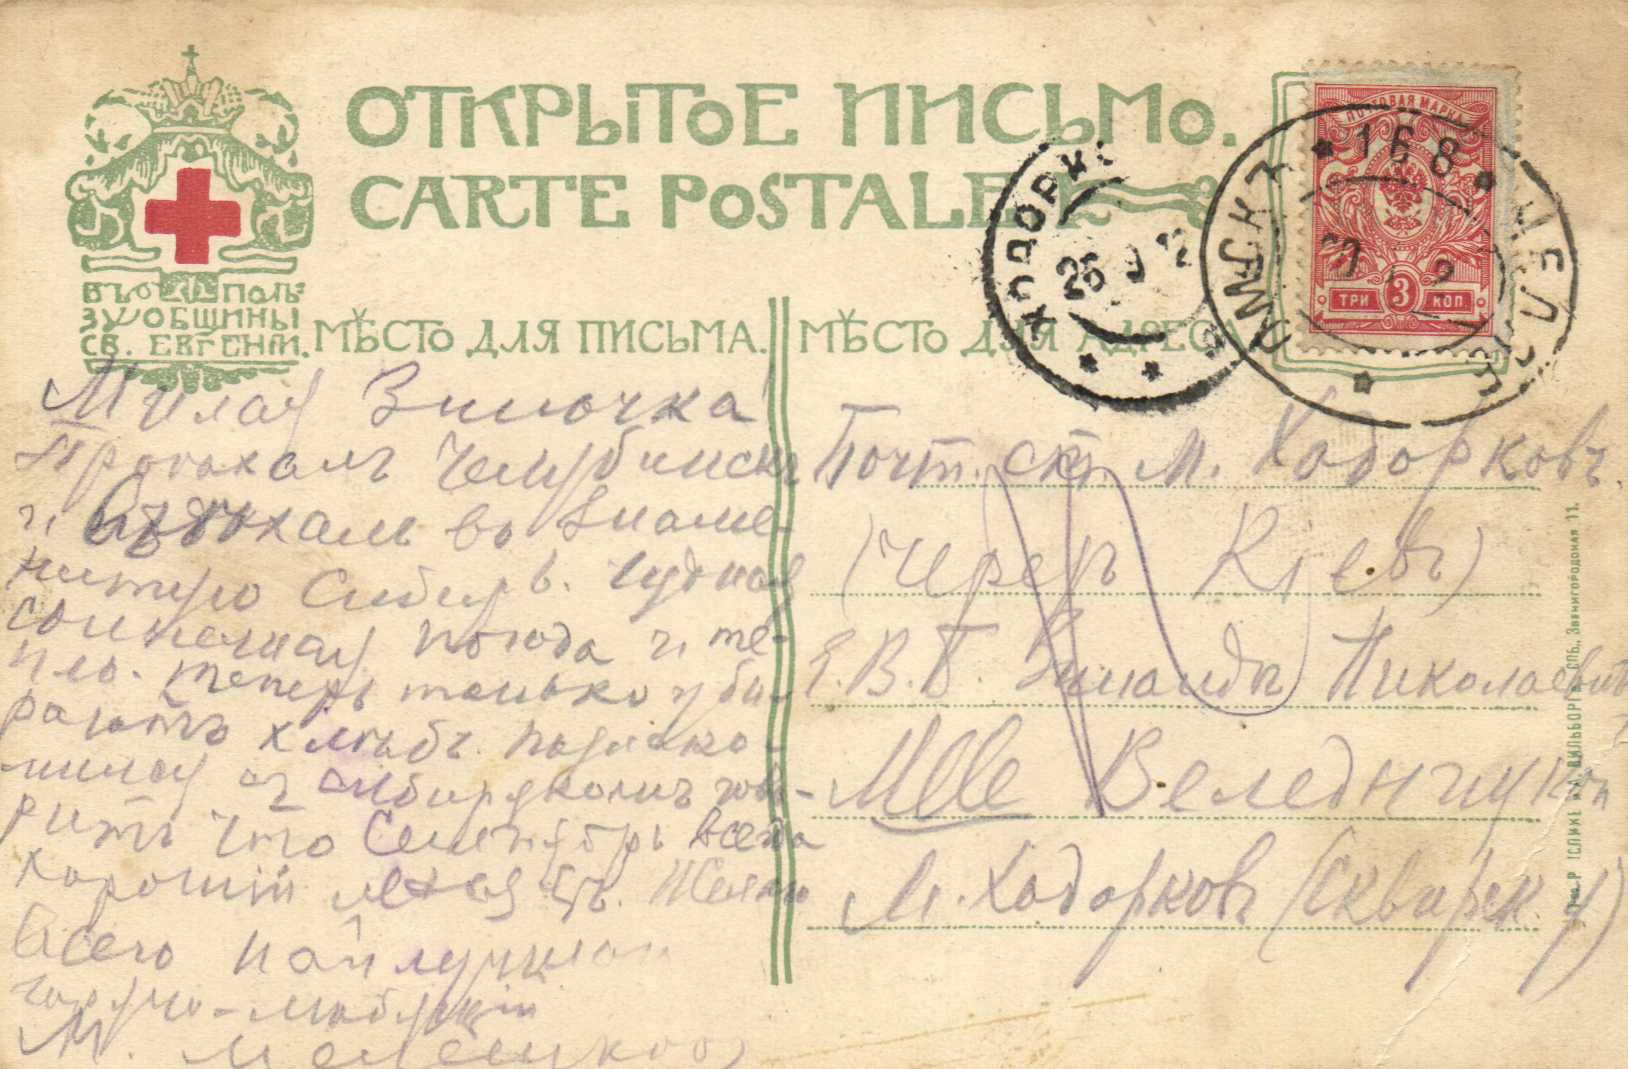 ОТКРЫТОЕ ПИСЬМО.
CARTE POSTALE
ВЪ ПОЛЬ
ЗУ ОБЩИНЫ
СВ. ЕВГЕНІИ.
МѢСТО ДЛЯ ПИСЬМА.
МѢСТО ДЛЯ АДРЕСА
ПОЧТОВАЯ МАРКА
ТРИ 3 КОП
ОМСКЪ * 168 * ЧЕЛ
ХОДОРК
26 9 12
Милая Зиночка
Проѣхали Челябинскъ
и въѣхали въ Знаме-
нитую Сибирь. Чудная
солнечная погода и те-
пло. Теперь только уби-
раютъ хлѣбъ. Познако-
милась съ сибирякомъ гово-
ритъ что Сентябрь всегда
хорошій мѣсяцъ. Желаю
всего наилучшаго
горячо-любящій
М.
Почт. ст. м. Ходорковъ.
(Черезъ Кіевъ)
Е. В. Б. Зинаиды Николаевнѣ
Mlle Веледницкой
М. Ходорковъ (Сквирск. у)
Р. ГОЛИКЕ и А. ВИЛЬБОРГЪ. СПБ., Звенигородская 11.